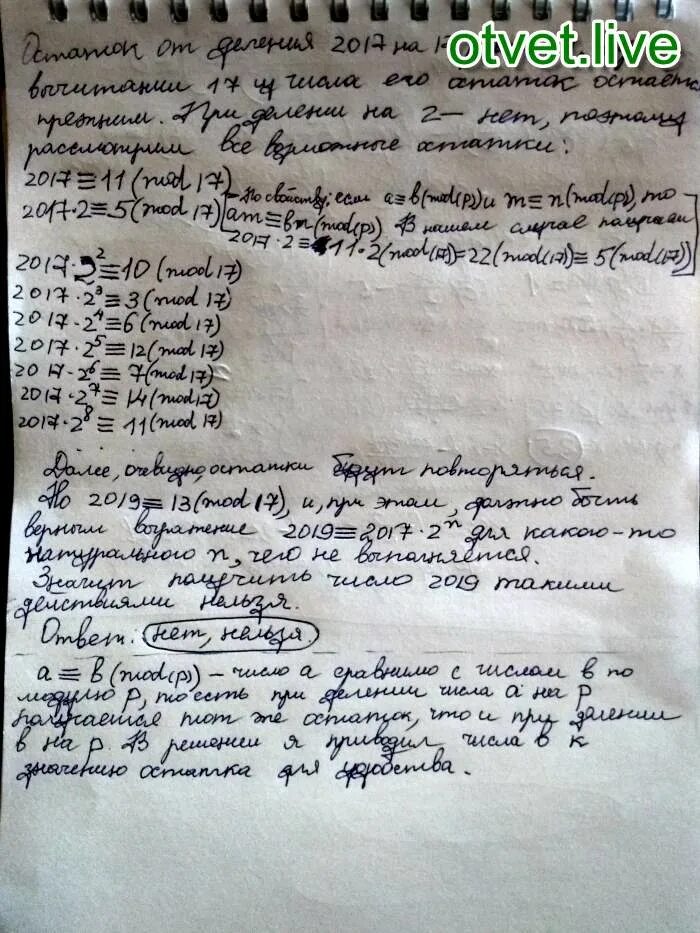 otvet.live
Остаток от деления 2017 на 17
вычитании 17 из числа его остаток остается
прежним. При делении на 2 — нет, поэтому
рассмотрим все возможные остатки:
2017 ≡ 11 (mod 17)
2017·2 ≡ 5 (mod 17)
[По свойству: если a ≡ b(mod(p)) и m ≡ n(mod(p)), то
am ≡ bn(mod(p)). В нашем случае получаем
2017·2 ≡ 11·2(mod(17)) = 22(mod(17)) ≡ 5(mod(17))]
2017·2² ≡ 10 (mod 17)
2017·2³ ≡ 3 (mod 17)
2017·2⁴ ≡ 6 (mod 17)
2017·2⁵ ≡ 12 (mod 17)
2017·2⁶ ≡ 7 (mod 17)
2017·2⁷ ≡ 14 (mod 17)
2017·2⁸ ≡ 11 (mod 17)
Далее, очевидно, остатки будут повторяться.
Но 2019 ≡ 13 (mod 17), и, при этом, должно быть
верным выражение 2019 ≡ 2017·2ⁿ для какого-то
натурального n, чего не выполняется.
Значит получить число 2019 такими
действиями нельзя.
Ответ: нет, нельзя.
a ≡ b (mod(p)) – число a сравнимо с числом b по
модулю p, то есть при делении числа a на p
получается тот же остаток, что и при делении
b на p. В решении я приводил числа b к
значению остатка для удобства.